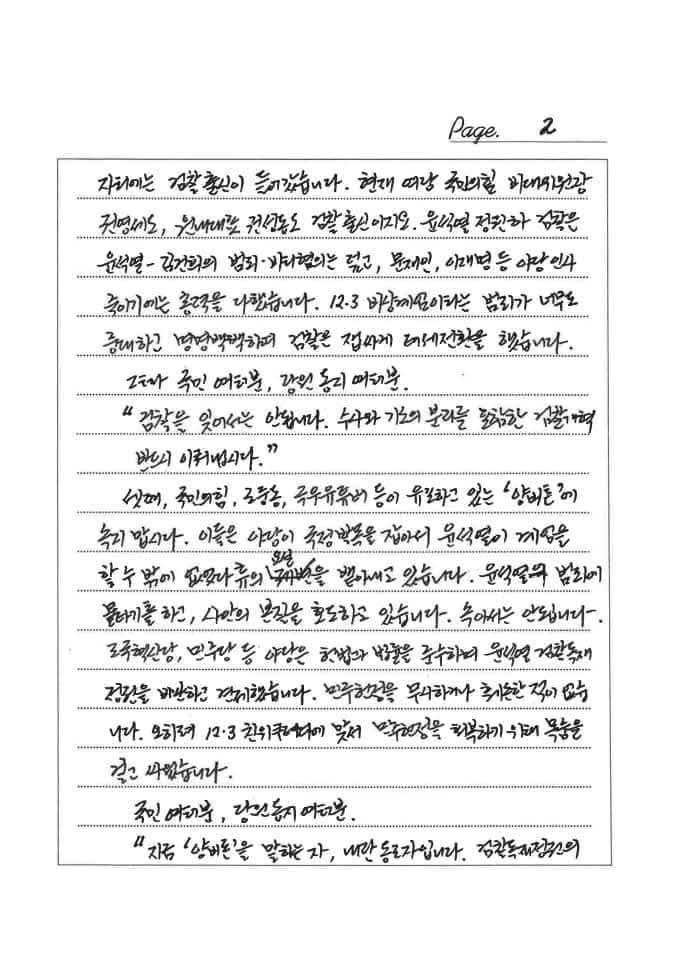 Page. 2
자리에는 검찰 출신이 들어갔습니다. 현재 여당 국민의힘 비대위원장
권영세도, 원내대표 권성동도 검찰 출신이지요. 윤석열 정권 하 검찰은
윤석열-김건희의 범죄·비리혐의는 덮고, 문재인, 이재명 등 야당 인사
죽이기에는 총력을 다했습니다. 12.3 비상계엄이라는 범죄가 너무도
중대하고 명명백백하여 검찰은 잽싸게 태세전환을 했습니다.
그러나 국민 여러분, 당원 동지 여러분.
"검찰을 잊어서는 안됩니다. 수사와 기소의 분리를 포함한 검찰개혁
반드시 이뤄냅시다."
셋째, 국민의힘, 조중동, 극우유튜버 등이 유포하고 있는 '양비론'에
속지 맙시다. 이들은 야당이 국정발목을 잡아서 윤석열이 계엄을
할 수 밖에 없었다 류의 요설
을 뱉아내고 있습니다. 윤석열의 범죄에
물타기를 하고, 사안의 본질을 호도하고 있습니다. 속아서는 안됩니다.
조국혁신당, 민주당 등 야당은 헌법과 법률을 준수하며 윤석열 검찰독재
정권을 비판하고 견제했습니다. 민주헌정을 무시하거나 훼손한 적이 없습
니다. 오히려 12.3 친위쿠데타에 맞서 민주헌정을 회복하기 위해 목숨을
걸고 싸웠습니다.
국민 여러분, 당원 동지 여러분.
"지금 '양비론'을 말하는 자, 내란 동조자입니다. 검찰독재정권의